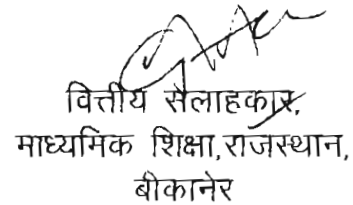 वित्तीय सलाहकार,
माध्यमिक शिक्षा,राजस्थान,
बीकानेर